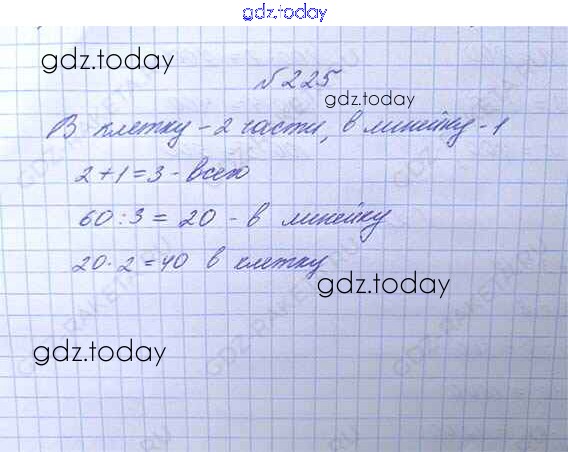 gdz.today
gdz.today
№225
gdz.today
В клетку - 2 части, в линейку - 1
2+1=3 - всего
60:3=20 - в линейку
20·2=40 в клетку
gdz.today
gdz.today